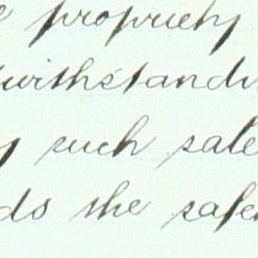 propriety
withstandi
such sale
ds the safe